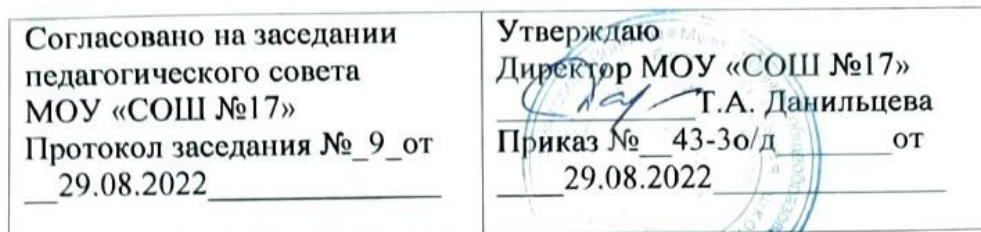 Согласовано на заседании
педагогического совета
МОУ «СОШ №17»
Протокол заседания №_9_от
__29.08.2022______________
Утверждаю
Директор МОУ «СОШ №17»
____________Т.А. Данильцева
Приказ №__43-3о/д_______от
____29.08.2022______________